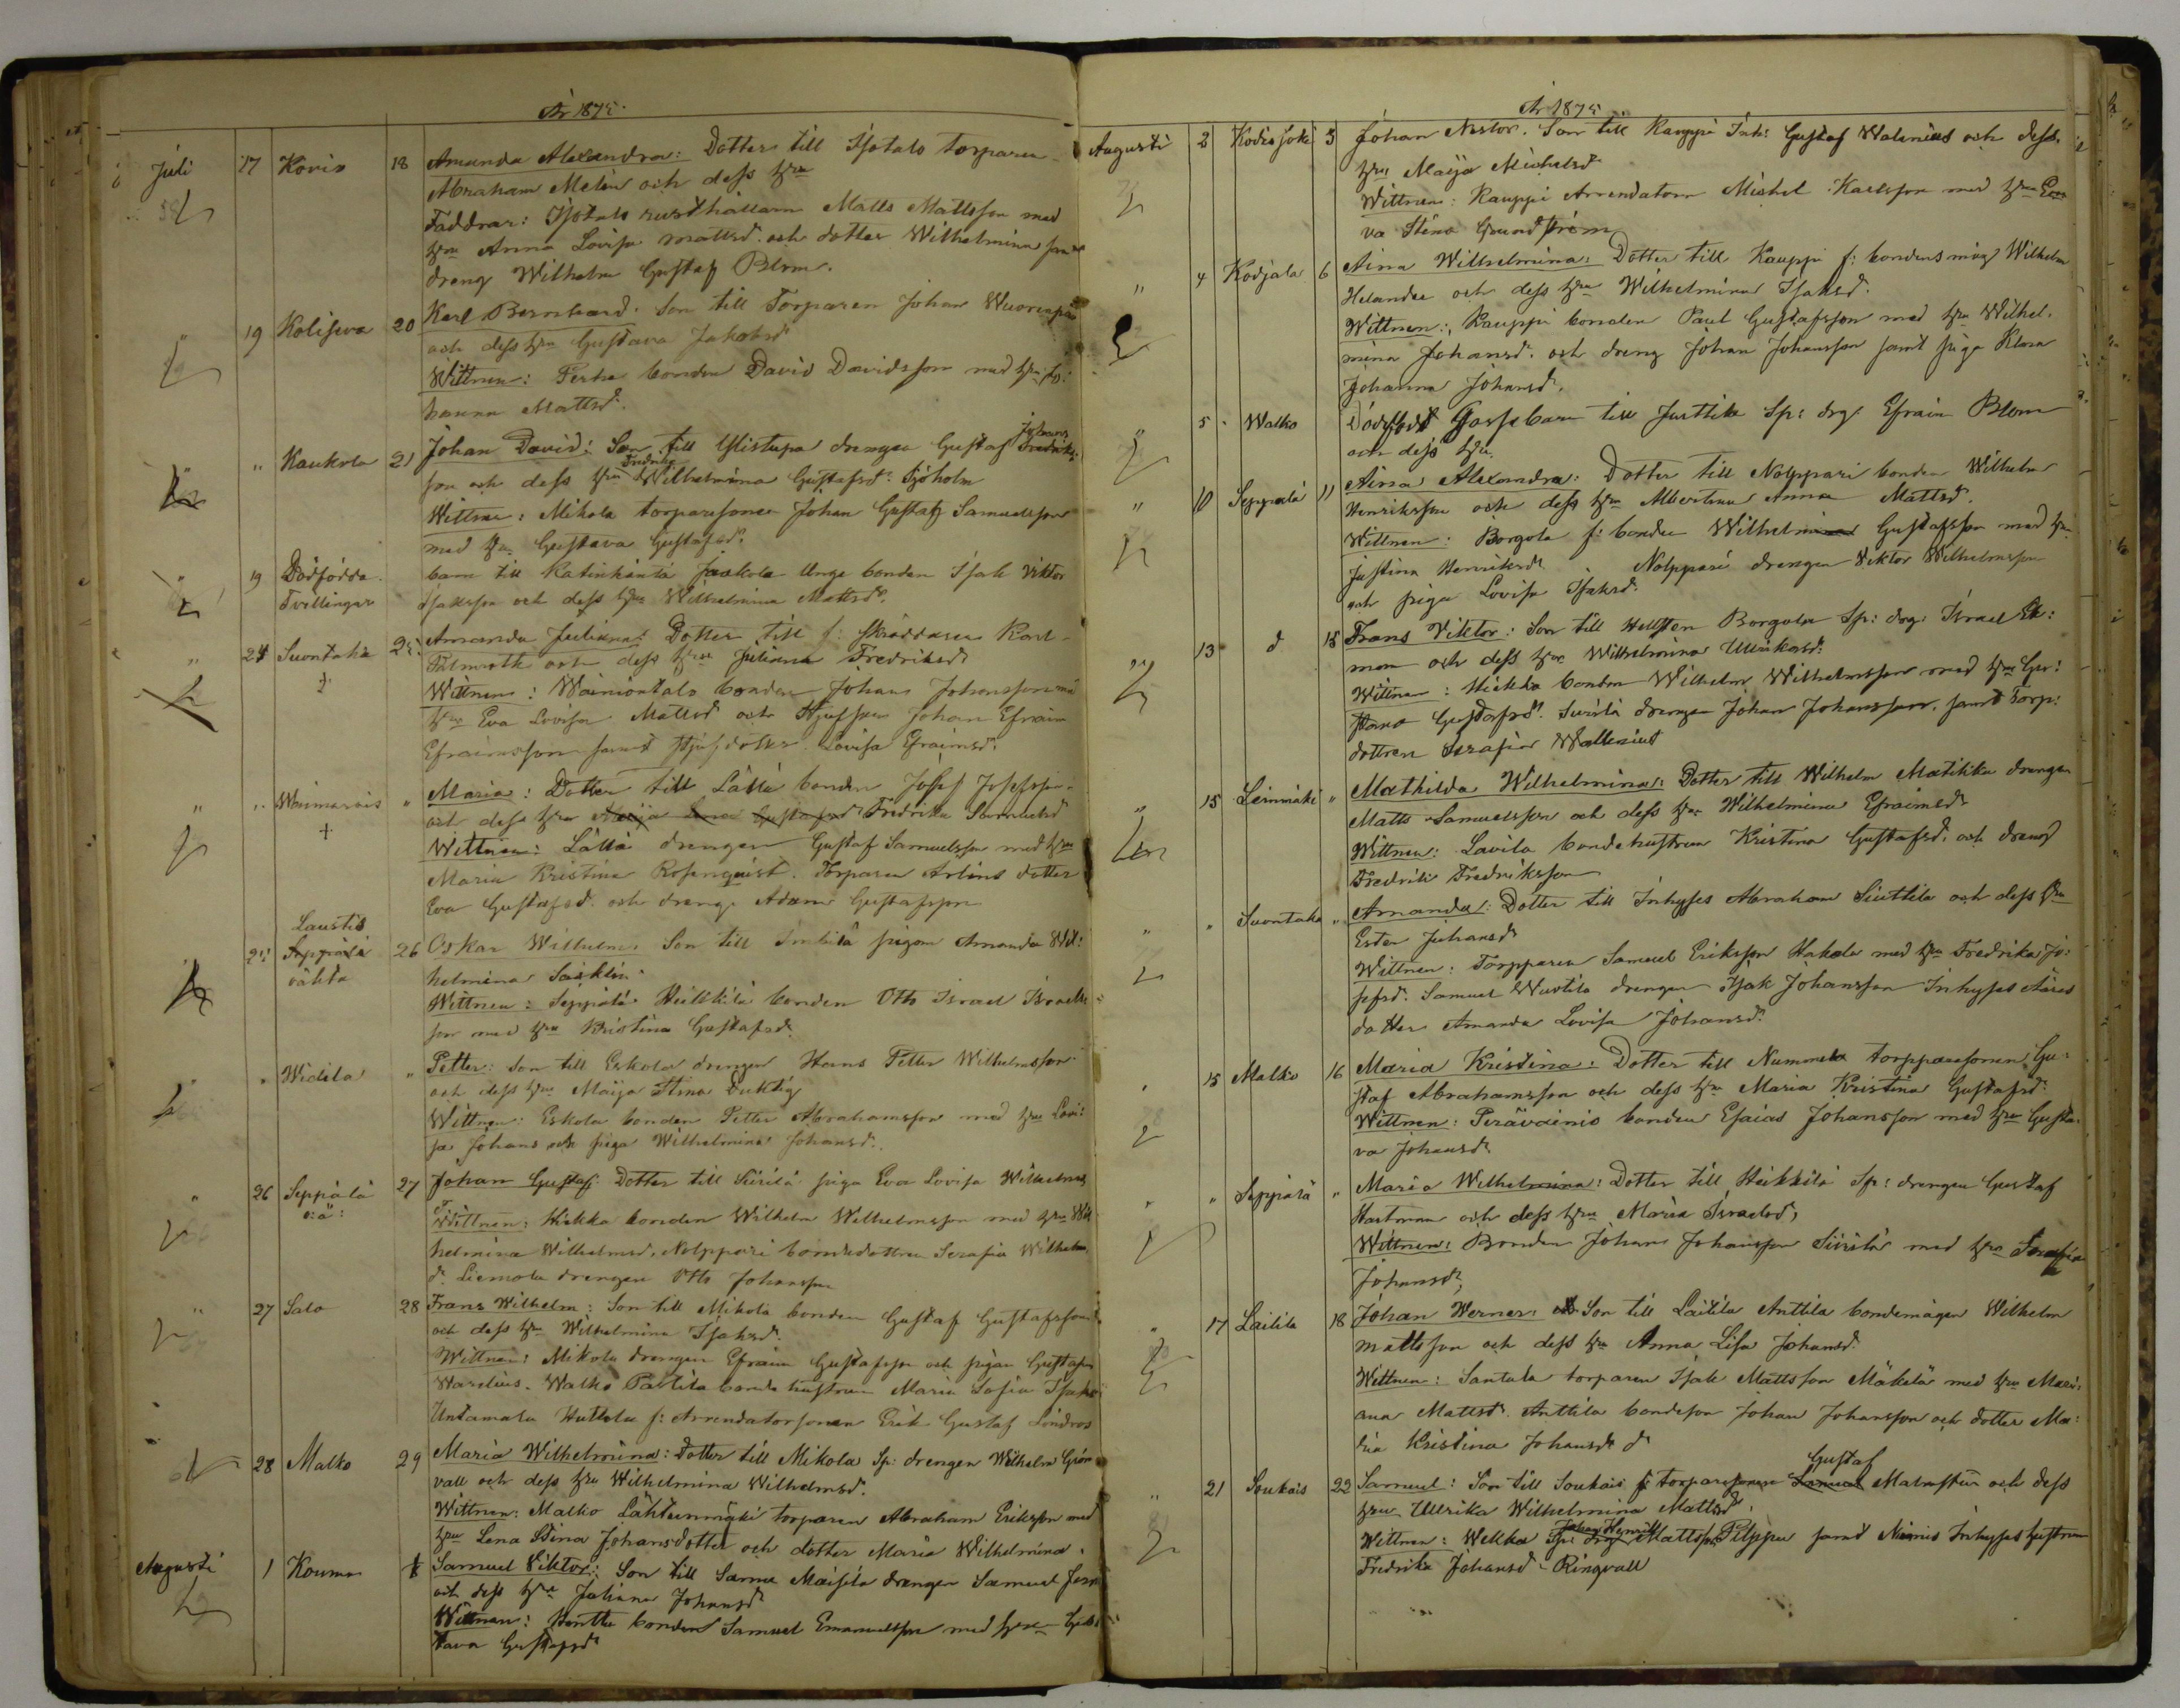 År 1875.
Juli 17 Kovio 18 Amanda Alexandra: Dotter till Isotalo torparen
Abraham Melin och dess hru
Faddrar: Isotalo rusthållaren Matts Mattsson med
hru Anna Lovisa Mattsd. och dotter Wilhelmina samt
dreng Wilhelm Gustaf Blom.
" 19 Koliseva 20 Karl Bernhard. Son till Torparen Johan Wuorenpää
och dess hru Gustava Jakobsd
Wittnen: Perho bonden David Davidsson med hru Jo:
hanna Mattsd.
" " Kaukola 21 Johan David: Son till Ylistupa drengen Gustaf Johans
son och dess hru Fredrika Wilhelmina Gustafsd. Sjöholm
Wittnen: Mikola torparesonen Johan Gustaf Samuelsson
med hu. Gustava Gustafsd.
" 19 Dödfödda barn till Katinhäntä Jaakola Unga bonden Isak Viktor
Tvillingar Isaksson och dess hru Wilhelmina Mattsd.
" 24 Suontaka 25 Amanda Juliana: Dotter till f: skräddaren Karl
och dess hru Juliana Fredriksd
Wittnen: Wäinöntalo bonden Johan Johansson med
hru Eva Lovisa Mattsd och Styfson Johan Efraim
Efraimsson samt Styfdotter Lovisa Efraimsd.
" " Wainmarois " Maria: Dotter till Lällä bonden Josef Josefsson
och dess hru Maija Lena Gustafsd Fredrika Samuelsd
Wittnen: Lällä drengen Gustaf Samuelsson med hru
Maria Kristina Rosenquist. Torparen Arlins dotter
Eva Gustafsd. och dreng Adam Gustafsson
Laustis
25 Seppälä 26 Oskar Wilhelm. Son till pigan Amanda Wil:
vähta helmina Säiklin.
Wittnen: Seppälä Heikkilä bonden Otto Israel Israels
son med hru Kristina Gustafsd.
" " Widila " Petter: Son till Eskola drengen Hans Petter Wilhelmsson
och dess hru Maija Stina Duktig
Wittnen: Eskola bonden Petter Abrahamsson med hru Lovi:
sa Johans och piga Wilhelmina Johansd.
" 26 Seppälä 27 Johan Gustaf. Dotter till Siirilä piga Eva Lovisa Wilhelms
o:ä:
Wittnen: Hiekka bonden Wilhelm Wilhelmsson med hru Wil
helmina Wilhelmsd. Nolppari bondedottren Serafia Wilhelm
d. Liemola drengen Otto Johansson
" 27 Salo 28 Frans Wilhelm: Son till Mikola bonden Gustaf Gustafsson
och dess hru Wilhelmina Isaksd.
Wittnen: Mikola drengen Efraim Gustafsson och pigan Gustafva
Warelius. Walko Parttila bonde hustrun Maria Sofia Isaks
Untamala Huttola f: Arrendatorsonen Erik Gustaf Lindros
28 Malko 29 Maria Wilhelmina: Dotter till Mikola Sp: drengen Wilhelm Grön
vall och dess hru Wilhelmina Wilhelmsd.
Wittnen: Malko Lähteenmäki torparen Abraham Eriksson med
hru Lena Stina Johansdotter och dotter Maria Wilhelmina.
Augusti 1 Kouma Samuel Viktor: Son till Sarna Maisila drengen Samuel
och dess hru Juliana Johansd
Wittnen: Hentta bonden Samuel Emanuelsson med hru Gus
tava Gustafsd
År 1875
Augusti 2 Kodisjoki 3 Johan Nestor. Son till Kauppi Inh: Gustaf Walenius och dess
hru Maija Michelsd
Wittnen: Kauppi Arrendatorn Mickel Karlsson med hru Eva
va Stina Grundström
" 4 Kodjala 6 Aina Wilhelmina: Dotter till Kauppi f: bondens måg Wilhelm
Helander och dess hru Wilhelmina Isaksd.
Wittnen: Kauppi bonden Paul Gustafsson med hru Wilhel
mina Johansd. och dreng Johan Johansson samt piga Klara
Johanna Johansd.
" 5 Walko Dödfödt Gossebarn till Junttila Sp: drg. Efraim Blom
och dess hru
" 10 Seppälä 11 Aina Alexandra: Dotter till Nolppari bonden Wilhelm
Henriksson och dess hru Albertina Anna Mattsd.
Wittnen: Borgola f: bonden Wilhelm Gustafsson med hru
Justina Henriksd Nolppari drengen Viktor Wilhelmsson
och piga Lovisa Isaksd.
" 13 d 15 Frans Viktor: Son till Borgola Sp: drg: Israel Ek:
man och dess hru Wilhelmina Ulrikasd.
Wittnen: Hiekka bonden Wilhelm Wilhelmsson med hru Gu:
stava Gustafsd. Siirilä drengen Johan Johansson, samt Torp:
dottren Serafia Wallenius
" 15 Leinmäki " Mathilda Wilhelmina: Dotter till Wilhelm Matikka drengen
Matts Samuelsson och dess hru Wilhelmina Efraimsd
Wittnen: Lavila bondehustrun Kristina Gustafsd. och dreng
Fredrik Fredriksson
" " Suontaka " Amanda: Dotter till Inhyses Abraham Siuttila och dess hru
Ester Johansd
Wittnen: Torpparen Samuel Eriksson Hakala med hru Fredrika Jo:
sefsd. Samuel Wuotila drengen Isak Johansson Inhyses
dotter Amanda Lovisa Johansd.
" 15 Malko 16 Maria Kristina: Dotter till Nummela torpparesonen Gu:
staf Abrahamsson och dess hru Maria Kristina Gustafsd.
Wittnen: Perävainio bonden Esaias Johansson med hru Gusta
va Johansd
" " Seppälä " Maria Wilhelmina: Dotter till Heikkilä Sp: drengen Gustaf
Hartman och dess hru Maria Israelsd,
Wittnen: Bonden Johan Johansson Siirilä med hru Serafia
Johansd,
" 17 Laitila 18 Johan Werner: Son till Laitila Anttila bondemågen Wilhelm
Mattsson och dess hru Anna Lisa Johansd.
Wittnen: Santala torparen Isak Mattsson Mäkelä med hru Mari:
ana Mattsd. Anttila bondeson Johan Johansson och dotter Ma:
ria Kristina Johansd d
" 21 Soukais 22 Samuel: Son till Soukais f: torparesonen Gustaf Malmsten och dess
hru Ulrika Wilhelmina Mattsd.
Wittnen: Wekka Sp: drg Johan Henrik Mattsson Pilppu samt Niemis Inhyses hustrun
Fredrika Johansd Ringvall